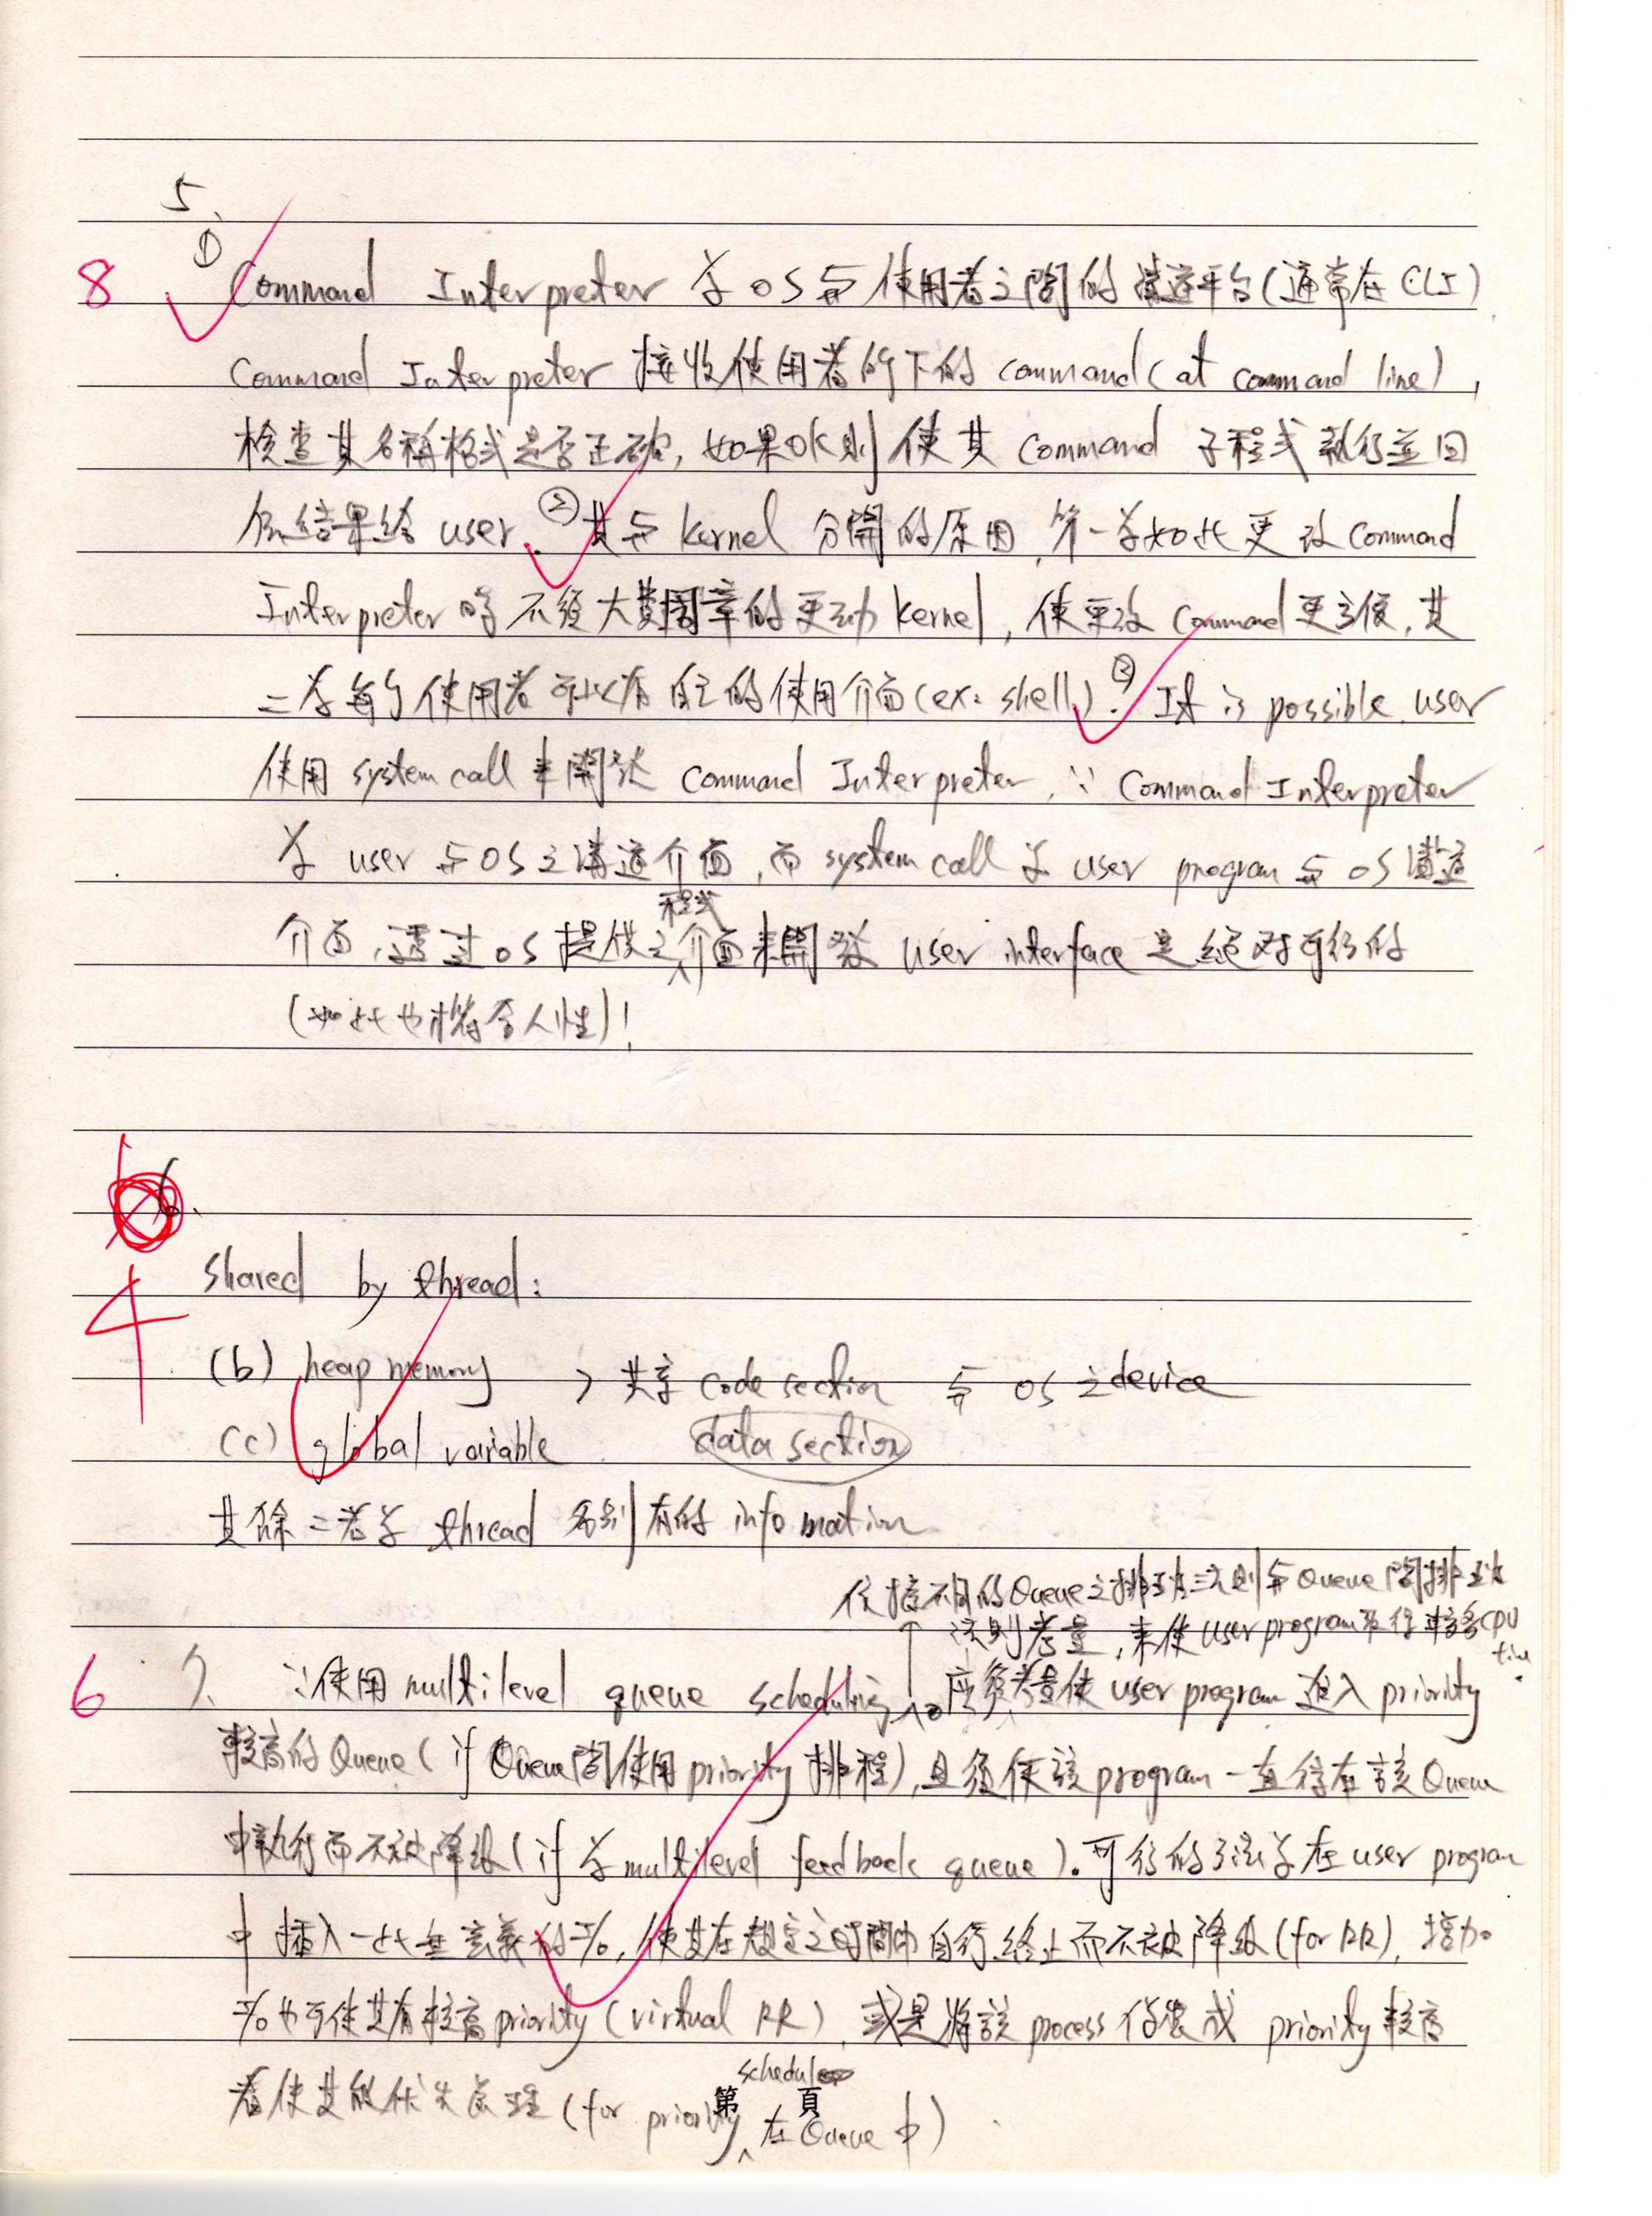 5.
8 ① Command Interpreter 为 OS 與使用者之間的溝通平台(通常在 CLI)
Command Interpreter 接收使用者所下的 command (at command line),
檢查其名稱格式是否正確,如果OK則使其 Command 子程式執行並回
傳結果給 user. ②其與 kernel 分開的原因,第一为如此更改 Command
Interpreter 時不須大費周章的更动 kernel, 使更改 Command 更方便,其
二为每个使用者可以有自己的使用介面(ex: shell). ③ It is possible user
使用 system call 來開發 Command Interpreter, ∵ Command Interpreter
为 user 與 OS 之溝通介面,而 system call 为 user program 與 OS 溝通
程式
介面,透过 OS 提供之介面來開發 user interface 是絕对可行的
(如此也才符合人性)!
6.
4 shared by thread:
(b) heap memory , 共享 code section 與 OS 之 device
(c) global variable data section
其餘二者为 thread 各別有的 information
依據不同的 Queue 之排班法則與 Queue 間排班
法則考量,來使 user program 獲得較多 CPU
time.
6 7. ∵使用 multilevel queue scheduling, 應須考量使 user program 進入 priority
較高的 Queue (if Queue 間使用 priority 排程),且須使該 program 一直待在該 Queue
中執行而不被降級(if 为 multilevel feedback queue).可行的方法为在 user program
中插入一些無意義的 I/O, 使其在規定之時間內自行終止而不被降級(for RR), 增加
I/O 也可使其有較高 priority (virtual RR), 或是將該 process 偽裝成 priority 較高
schedule
者使其能優先處理 (for priority 在 Queue 中)
第 頁